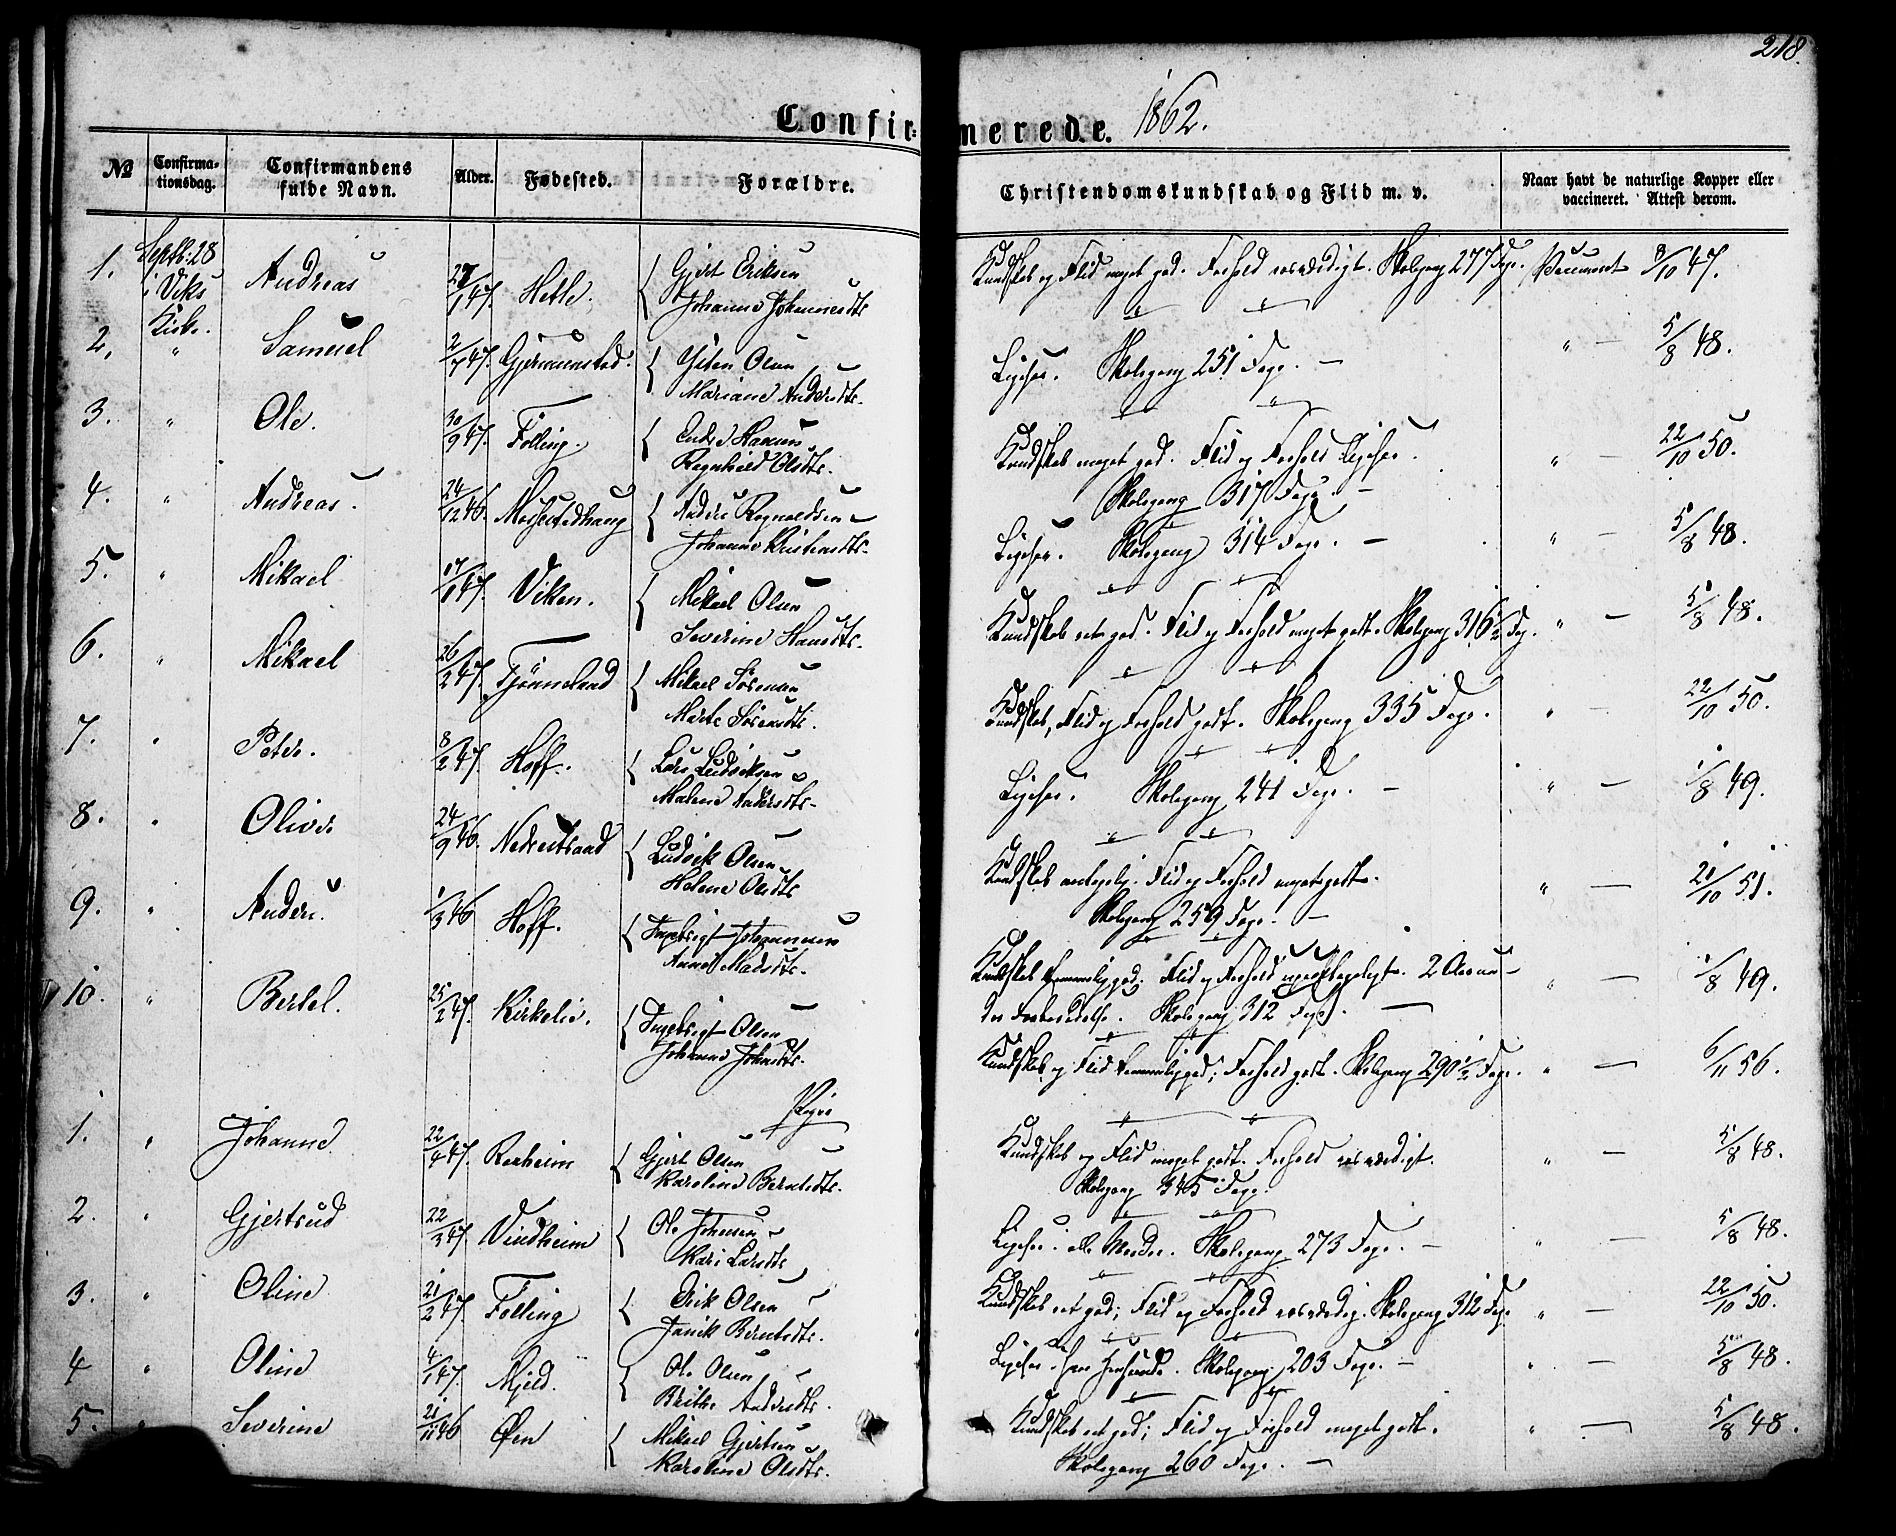 218.
Confirmerede. 1862.
№ Confirmationsdag. Confirmandens fulde Navn. Alder. Fødested. Forældre. Christendomskundskab og Flid m. v. Naar havt de naturlige Kopper eller vaccineret. Attest derom.
1. Septb: 28 i Viks Kirke. Andreas 27/1 47. Hetle. Gjert Eriksen
Johanne Johannesdtr Kundskab og Flid meget god. Forhold rosværdigt. Skolegang 277 Dage. Vaccineret 8/10 47.
2. " Samuel 2/7 47. Gjermunstad. Olsen
Mariane Andersdtr. Ligesaa. Skolegang 251 Dage. — " — 5/8 48.
3. " Ole. 30/9 47. Følling. Hansen
Ragnhild Olsdtr. Kundskab meget god. Flid og Forhold Ligesaa.
Skolegang 317 Dage. — " — 22/10 50.
4. " Andreas. 24/12 46. Anders Rognaldsen
Johanne Kristensdtr. Ligesaa. Skolegang 314 Dage. — " — 5/8 48.
5. " Mikael 17/1 47. Viken. Mikael Olsen
Severine Hansdtr. Kundskab ret god. Flid og Forhold meget godt. Skolegang 316 1/2 Dag. " — 5/8 48.
6. " Mikael 26/2 47. Mikael
Marte Kundskab, Flid og Forhold godt. Skolegang 335 Dage. " — 22/10 50.
7. " Peder. 8/2 47. Hoff. Lars Ludviksen
Malene Andersdtr. Ligesaa. Skolegang 241 Dage. — " — 1/8 49.
8. " Oliver 24/9 46. Nedrestraad Ludvik Olsen
Helene Olsdtr Kundskab Flid og Forhold meget godt.
Skolegang 259 Dage. — " — 21/10 51.
9. " Anders. 1/3 46 Hoff. Ingebrigt Johannesen
Anne Madsdtr. Kundskab temmelig god. Flid og Forhold 2 Aar un-
der Forberedelse. Skolegang 312 Dage. — " — 1/8 49.
10. " Bertel. 25/2 47. Kirkelid. Ingebrigt Olsen
Johanne Johnsdtr. Kundskab og Flid temmelig god; Forhold godt. Skolegang 290 1/2 Dage. " — 6/11 56.
Piger
1. " Johanne 22/4 47. Rexheim Gjert Olsen
Karoline Berntsdtr. Kundskab og Flid meget godt. Forhold rosværdigt.
Skolegang 345 Dage. " — 5/8 48.
2. " Gjertrud 22/3 47. Vindheim Ole Johnsen
Kari Larsdtr Ligesaa. alle Maader. Skolegang 273 Dage. — " — 5/8 48.
3. " Oline 21/2 47. Følling Erik Olsen
Janik Berntsdtr. Kundskab ret god; Flid og Forhold rosværdig. Skolegang 312 Dage " — 22/10 50.
4 " Oline 4/1 47. Mjeld. Ole Olsen
Brithe Andersdtr. Ligesaa. Skolegang 203 Dage. — " — 5/8 48.
5. " Severine 21/11 46 Øen Mikael Gjertsen
Karoline Olsdtr. Kundskab ret god; Flid og Forhold meget godt.
Skolegang 260 Dage. — " — 5/8 48.